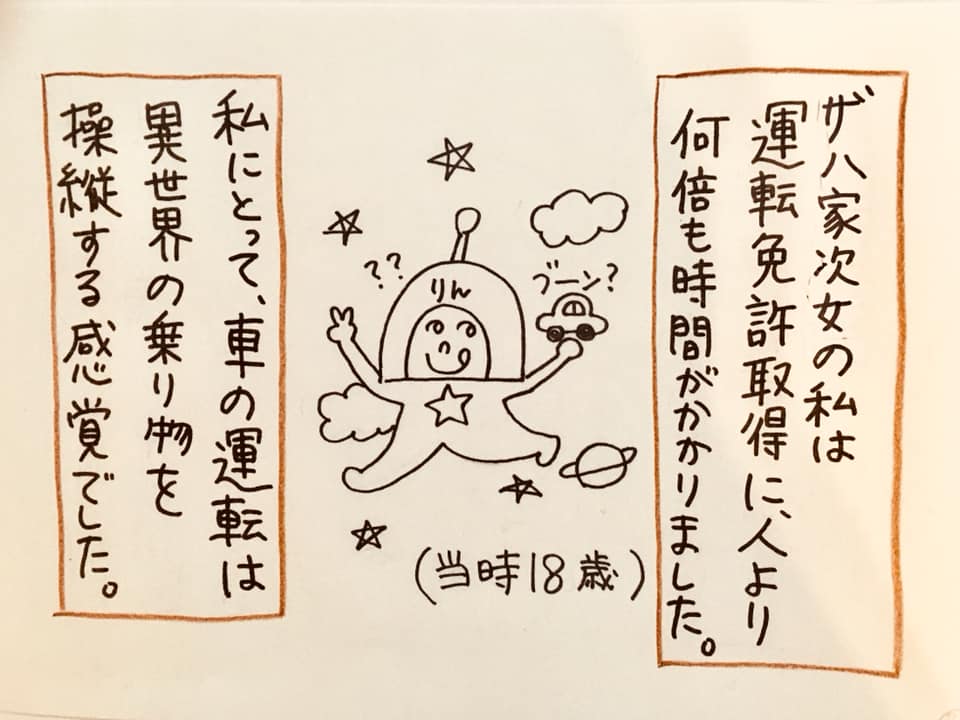 ザハ家次女の私は
運転免許取得に、人より
何倍も時間がかかりました。
ブーン?
??
りん
(当時18歳)
私にとって、車の運転は
異世界の乗り物を
操縦する感覚でした。